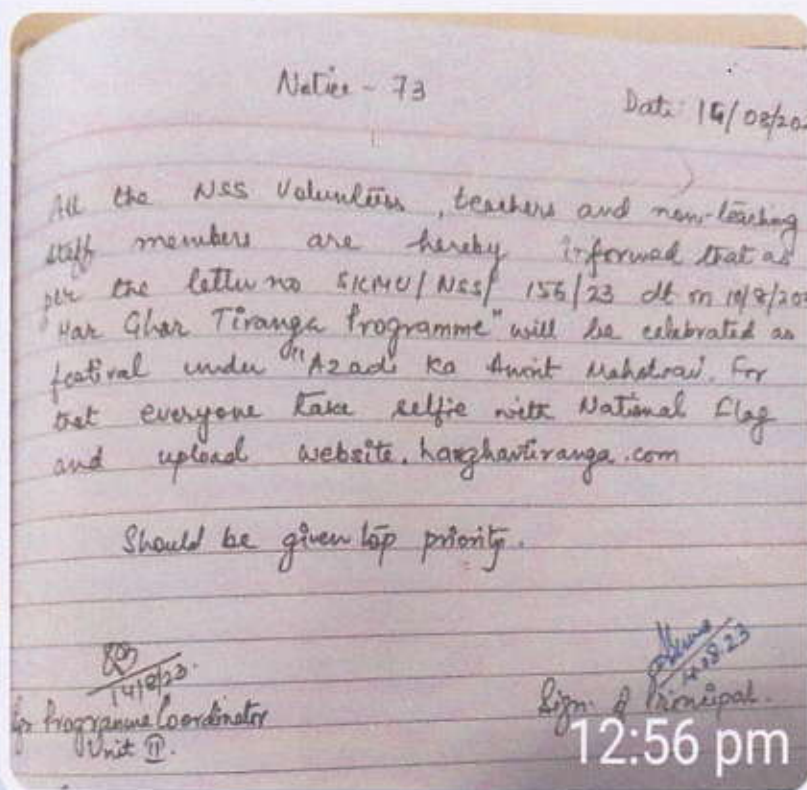 Notice - 73
Date: 14/08/202
All the NSS Volunteers, teachers and non-teaching
staff members are hereby informed that as
per the letter no SKMU/NSS/ 156/23 dt on 10/8/202
Har Ghar Tiranga Programme" will be celebrated as
festival under "Azadi ka Amrit Mahotsav. For
that everyone take selfie with National Flag
and upload website. harghartiranga.com
Should be given top priority.
14/8/23.
14.08.23
for Programme Coordinator
Sign. of Principal.
Unit II.
12:56 pm